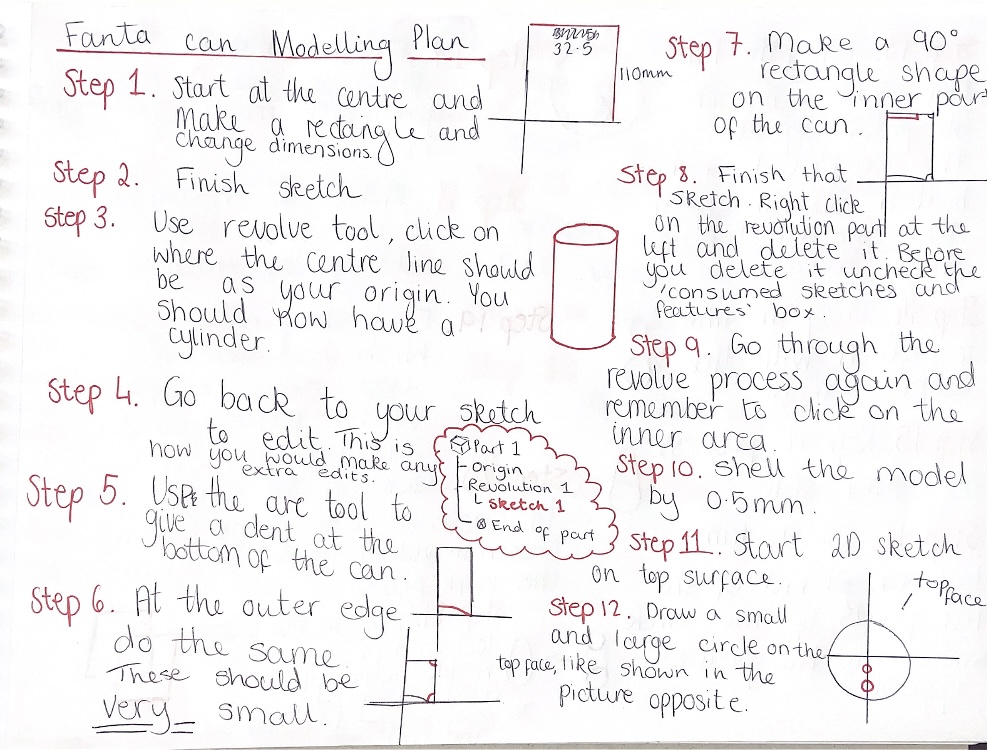 Fanta can Modelling Plan
Step 1. Start at the centre and
make a rectangle and
change dimensions.
32.5
110mm
Step 2. Finish sketch
Step 3. Use revolve tool, click on
where the centre line should
be as your origin. You
should now have a
cylinder.
Step 4. Go back to your sketch
to edit. This is
how you would make any
extra edits.
Part 1
Origin
Revolution 1
Sketch 1
End of part
Step 5. Use the arc tool to
give a dent at the
bottom of the can.
Step 6. At the outer edge
do the same.
These should be
very small.
Step 7. Make a 90°
rectangle shape
on the inner part
of the can.
Step 8. Finish that
sketch. Right click
on the revolution part at the
left and delete it. Before
you delete it uncheck the
'consumed sketches and
features' box.
Step 9. Go through the
revolve process again and
remember to click on the
inner area.
Step 10. Shell the model
by 0.5mm.
Step 11. Start 2D sketch
on top surface.
top face
Step 12. Draw a small
and large circle on the
top face, like shown in the
picture opposite.